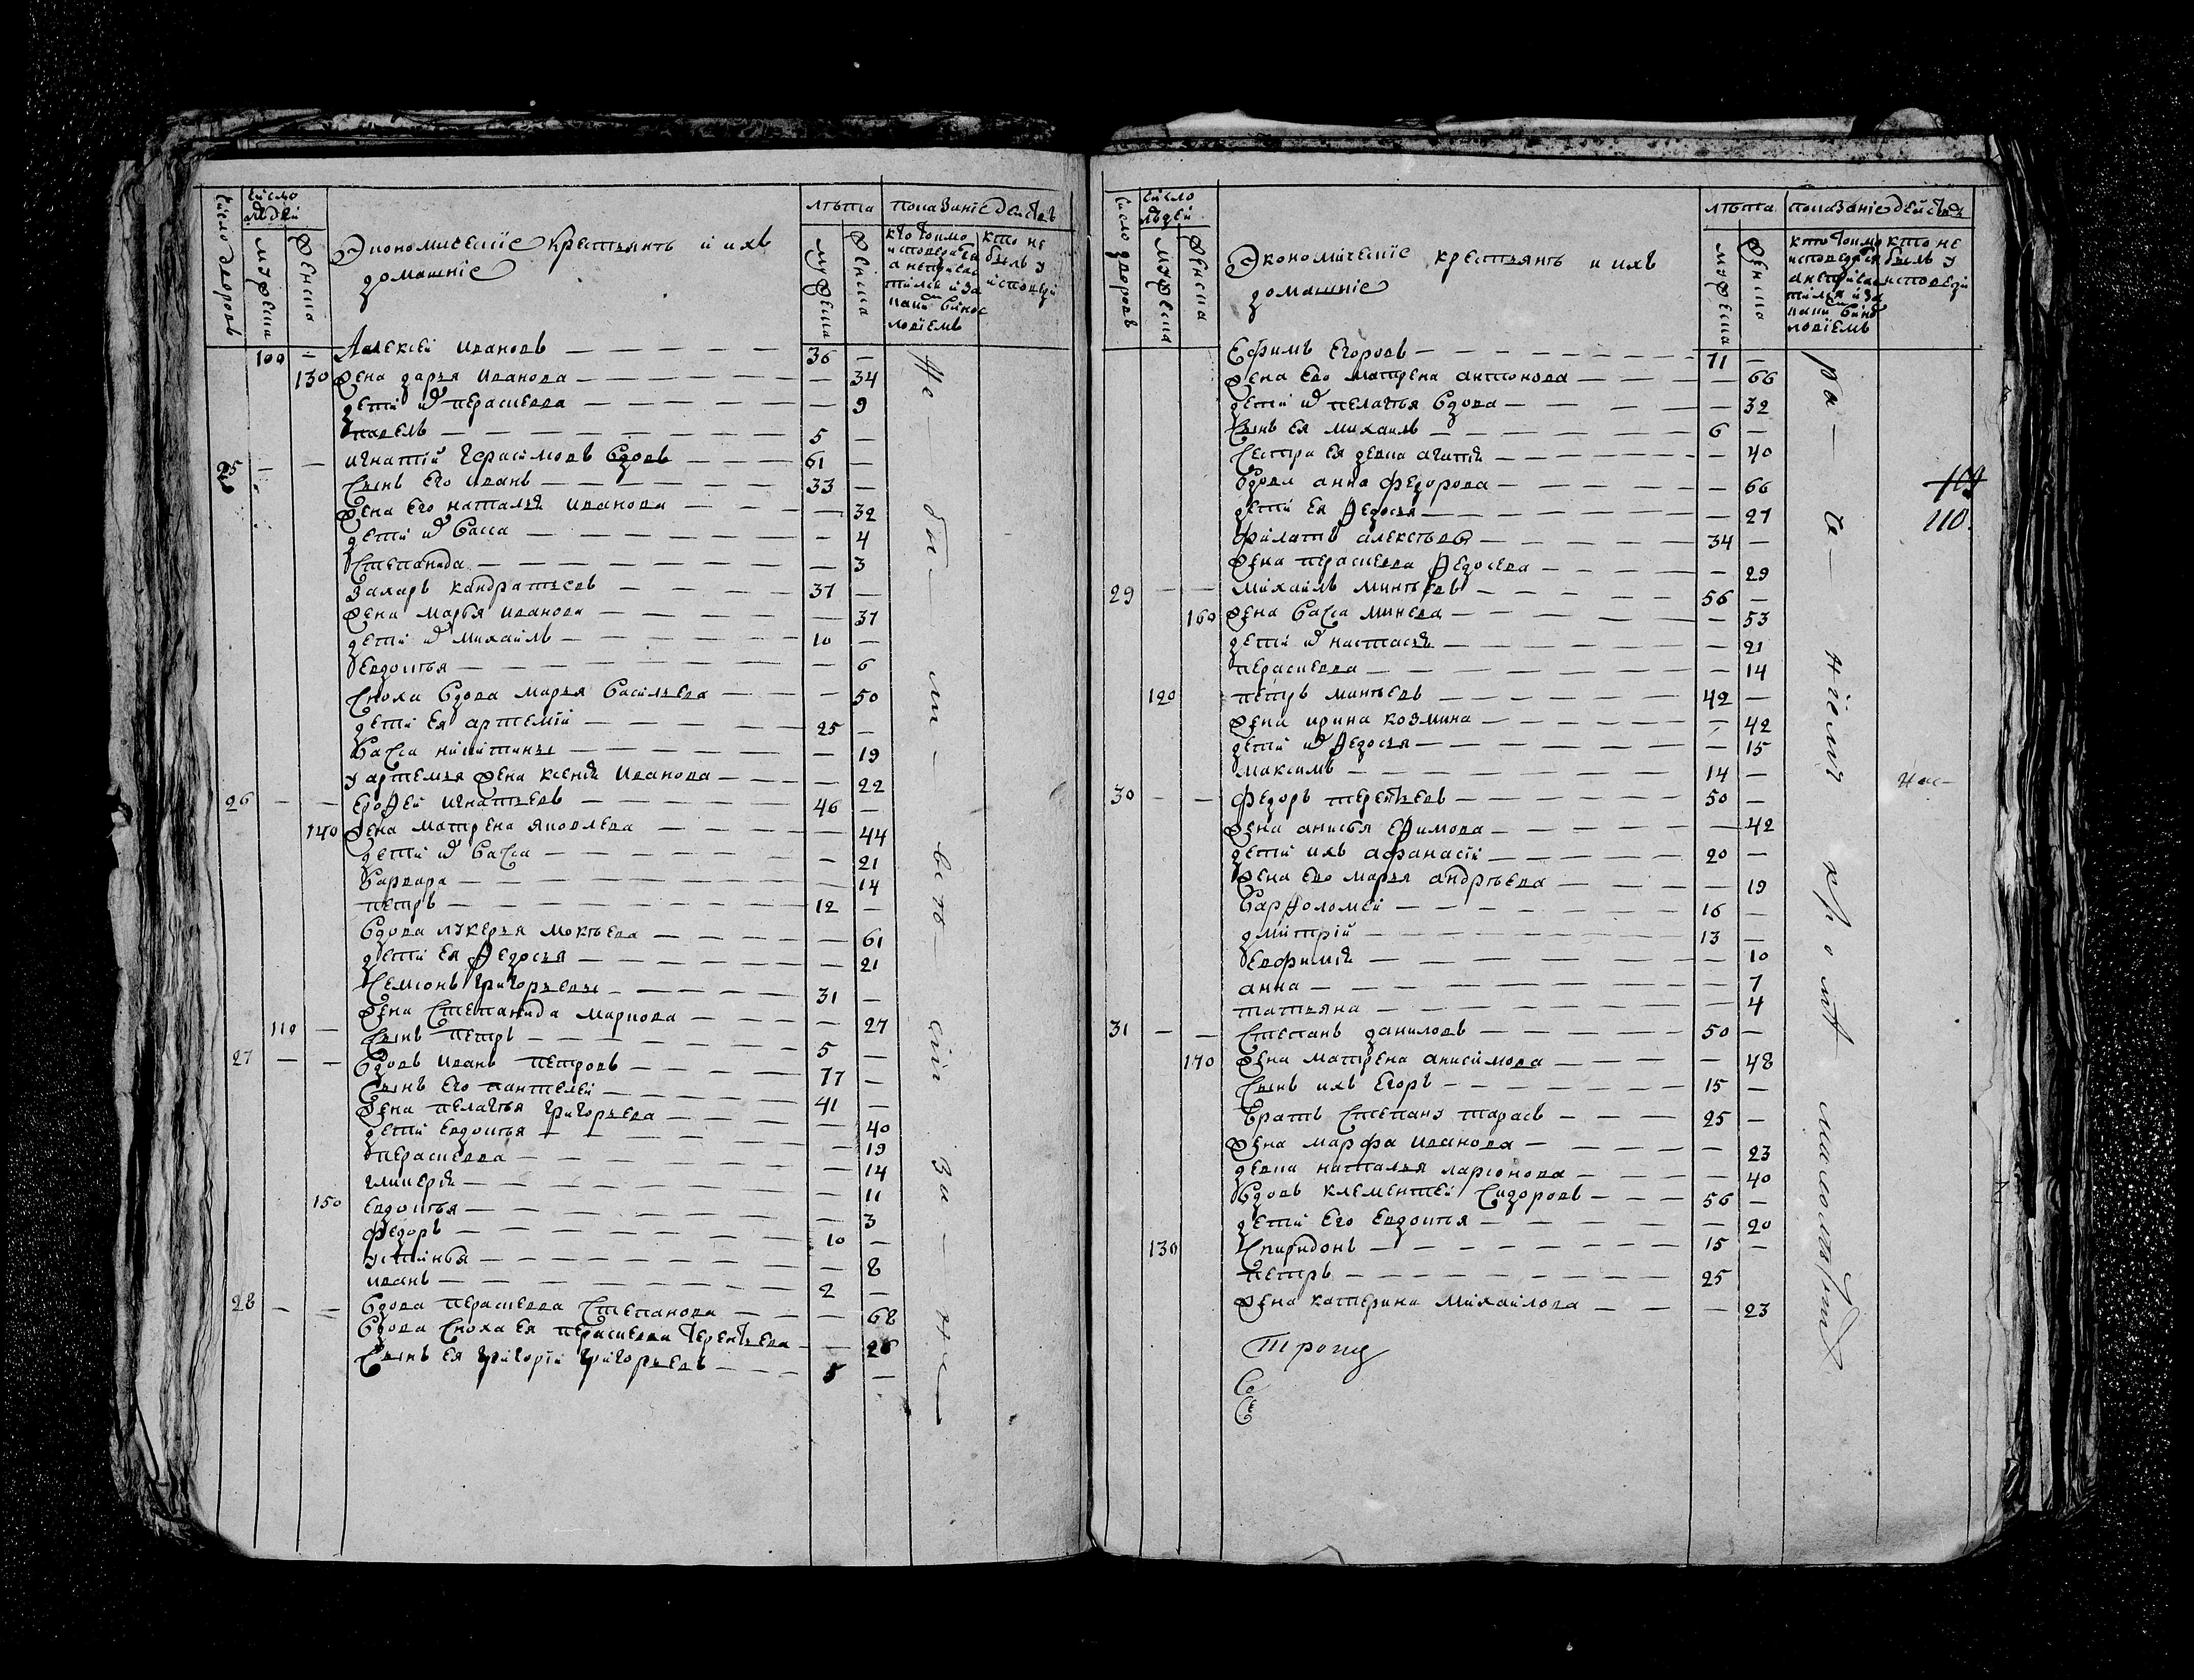 число дворовъ
число людей
мужеска
женска
Экономическіе крестьянъ и ихъ
домашніе
лѣта
мужеска
женска
показаніе действъ
кто токмо
исповедался
а непричас
тился и за
каким винос
ловіемъ
кто не
былъ у
исповеди
100 — Алексей Ивановъ 36 —
130 жена дарья Иванова — 34
дети их перасковва — 9
павелъ 5 —
25 — — игнатій Герасимовъ вдовъ 61 —
сынъ его иванъ 33 —
жена его наталья иванова — 32
дети их васса — 4
степанида — 3
захаръ кандратьевъ 37 —
жена марья иванова — 37
дети их михайлъ 10 —
евдокья — 6
сноха вдова марья васильева — 50
дети ея артемій 25 —
васса никитины — 19
у артемья жена ксенья иванова — 22
26 — — ерофей игнатьевъ 46 —
140 жена матрена яковлева — 44
дети их васса — 21
варвара — 14
петръ 12 —
вдова лукерья моктева — 61
дети ея федосья — 21
семіонъ григорьевы 31 —
жена степанида маркова — 27
110 — сынъ петръ 5 —
27 — — вдовъ иванъ петровъ 77 —
сынъ его пантелей 41 —
жена пелагья григорьева — 40
дети евдокья — 19
перасковва — 14
гликерья — 11
150 евдокья — 3
федоръ 10 —
устинья — 8
иванъ 2 —
28 — — вдова перасковва степанова — 68
вдова сноха ея перасковва терентьева — 26
сынъ ея григорій григорьевъ 5 —
число дворовъ
число людей
мужеска
женска
Экономическіе крестьянъ и ихъ
домашніе
лѣта
мужеска
женска
показаніе действъ
кто токмо
исповедался
а непричас
тился и за
каким вино
ловіемъ
кто не
былъ у
исповеди
Ефимъ Егоровъ 71 —
жена ево матрена антонова — 66
дети их пелагья вдова — 32
сынъ ея михаилъ 6 —
сестра ея девка агапія — 40
вдова анна федорова — 66
дети ея федосья — 27
филатъ алексѣевъ 34 —
жена перасковва федосеева — 29
110
29 — — михайлъ минѣевъ 56 —
160 жена васса минева — 53
дети их настасья — 21
перасковва — 14
120 петръ минѣевъ 42 —
жена ирина козмина — 42
дети их федосья — 15
максимъ 14 —
30 — — федоръ терентьевъ 50 —
жена анисья ефимова — 42
дети ихъ афанасій 20 —
жена ево марья андрѣева — 19
варфоломей 16 —
дмитрій 13 —
евфимія — 10
анна — 7
татьяна — 4
31 — — степанъ даниловъ 50 —
170 жена матрена анисимова — 48
сынъ ихъ егоръ 15 —
братъ степану тарасъ 25 —
жена марфа иванова — 23
девка наталья ларіонова — 40
вдовъ клементей сидоровъ 56 —
дети его евдокія — 20
130 спиридонъ 15 —
петръ 25
жена катерина михайлова — 23